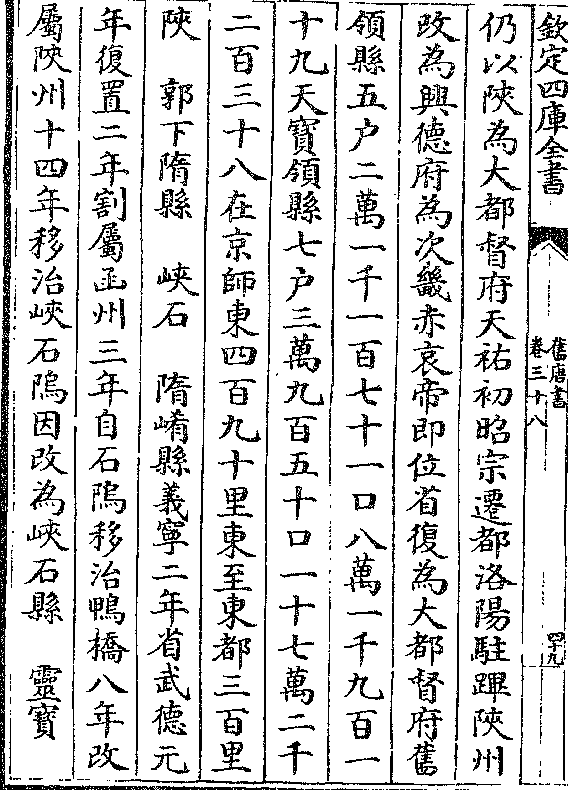 欽定四庫全書
舊唐書
卷三十八
四十九
仍以陝為大都督府天祐初昭宗遷都洛陽駐蹕陝州
改為興德府為次畿赤哀帝即位省復為大都督府舊
領縣五户二萬一千一百七十一口八萬一千九百一
十九天寶領縣七户三萬九百五十口一十七萬二千
二百三十八在京師東四百九十里東至東都三百里
陝　郭下隋縣　峽石　隋崤縣義寧二年省武德元
年復置二年割屬函州三年自石隖移治鴨橋八年改
屬陝州十四年移治峽石隖因改為峽石縣　靈寶